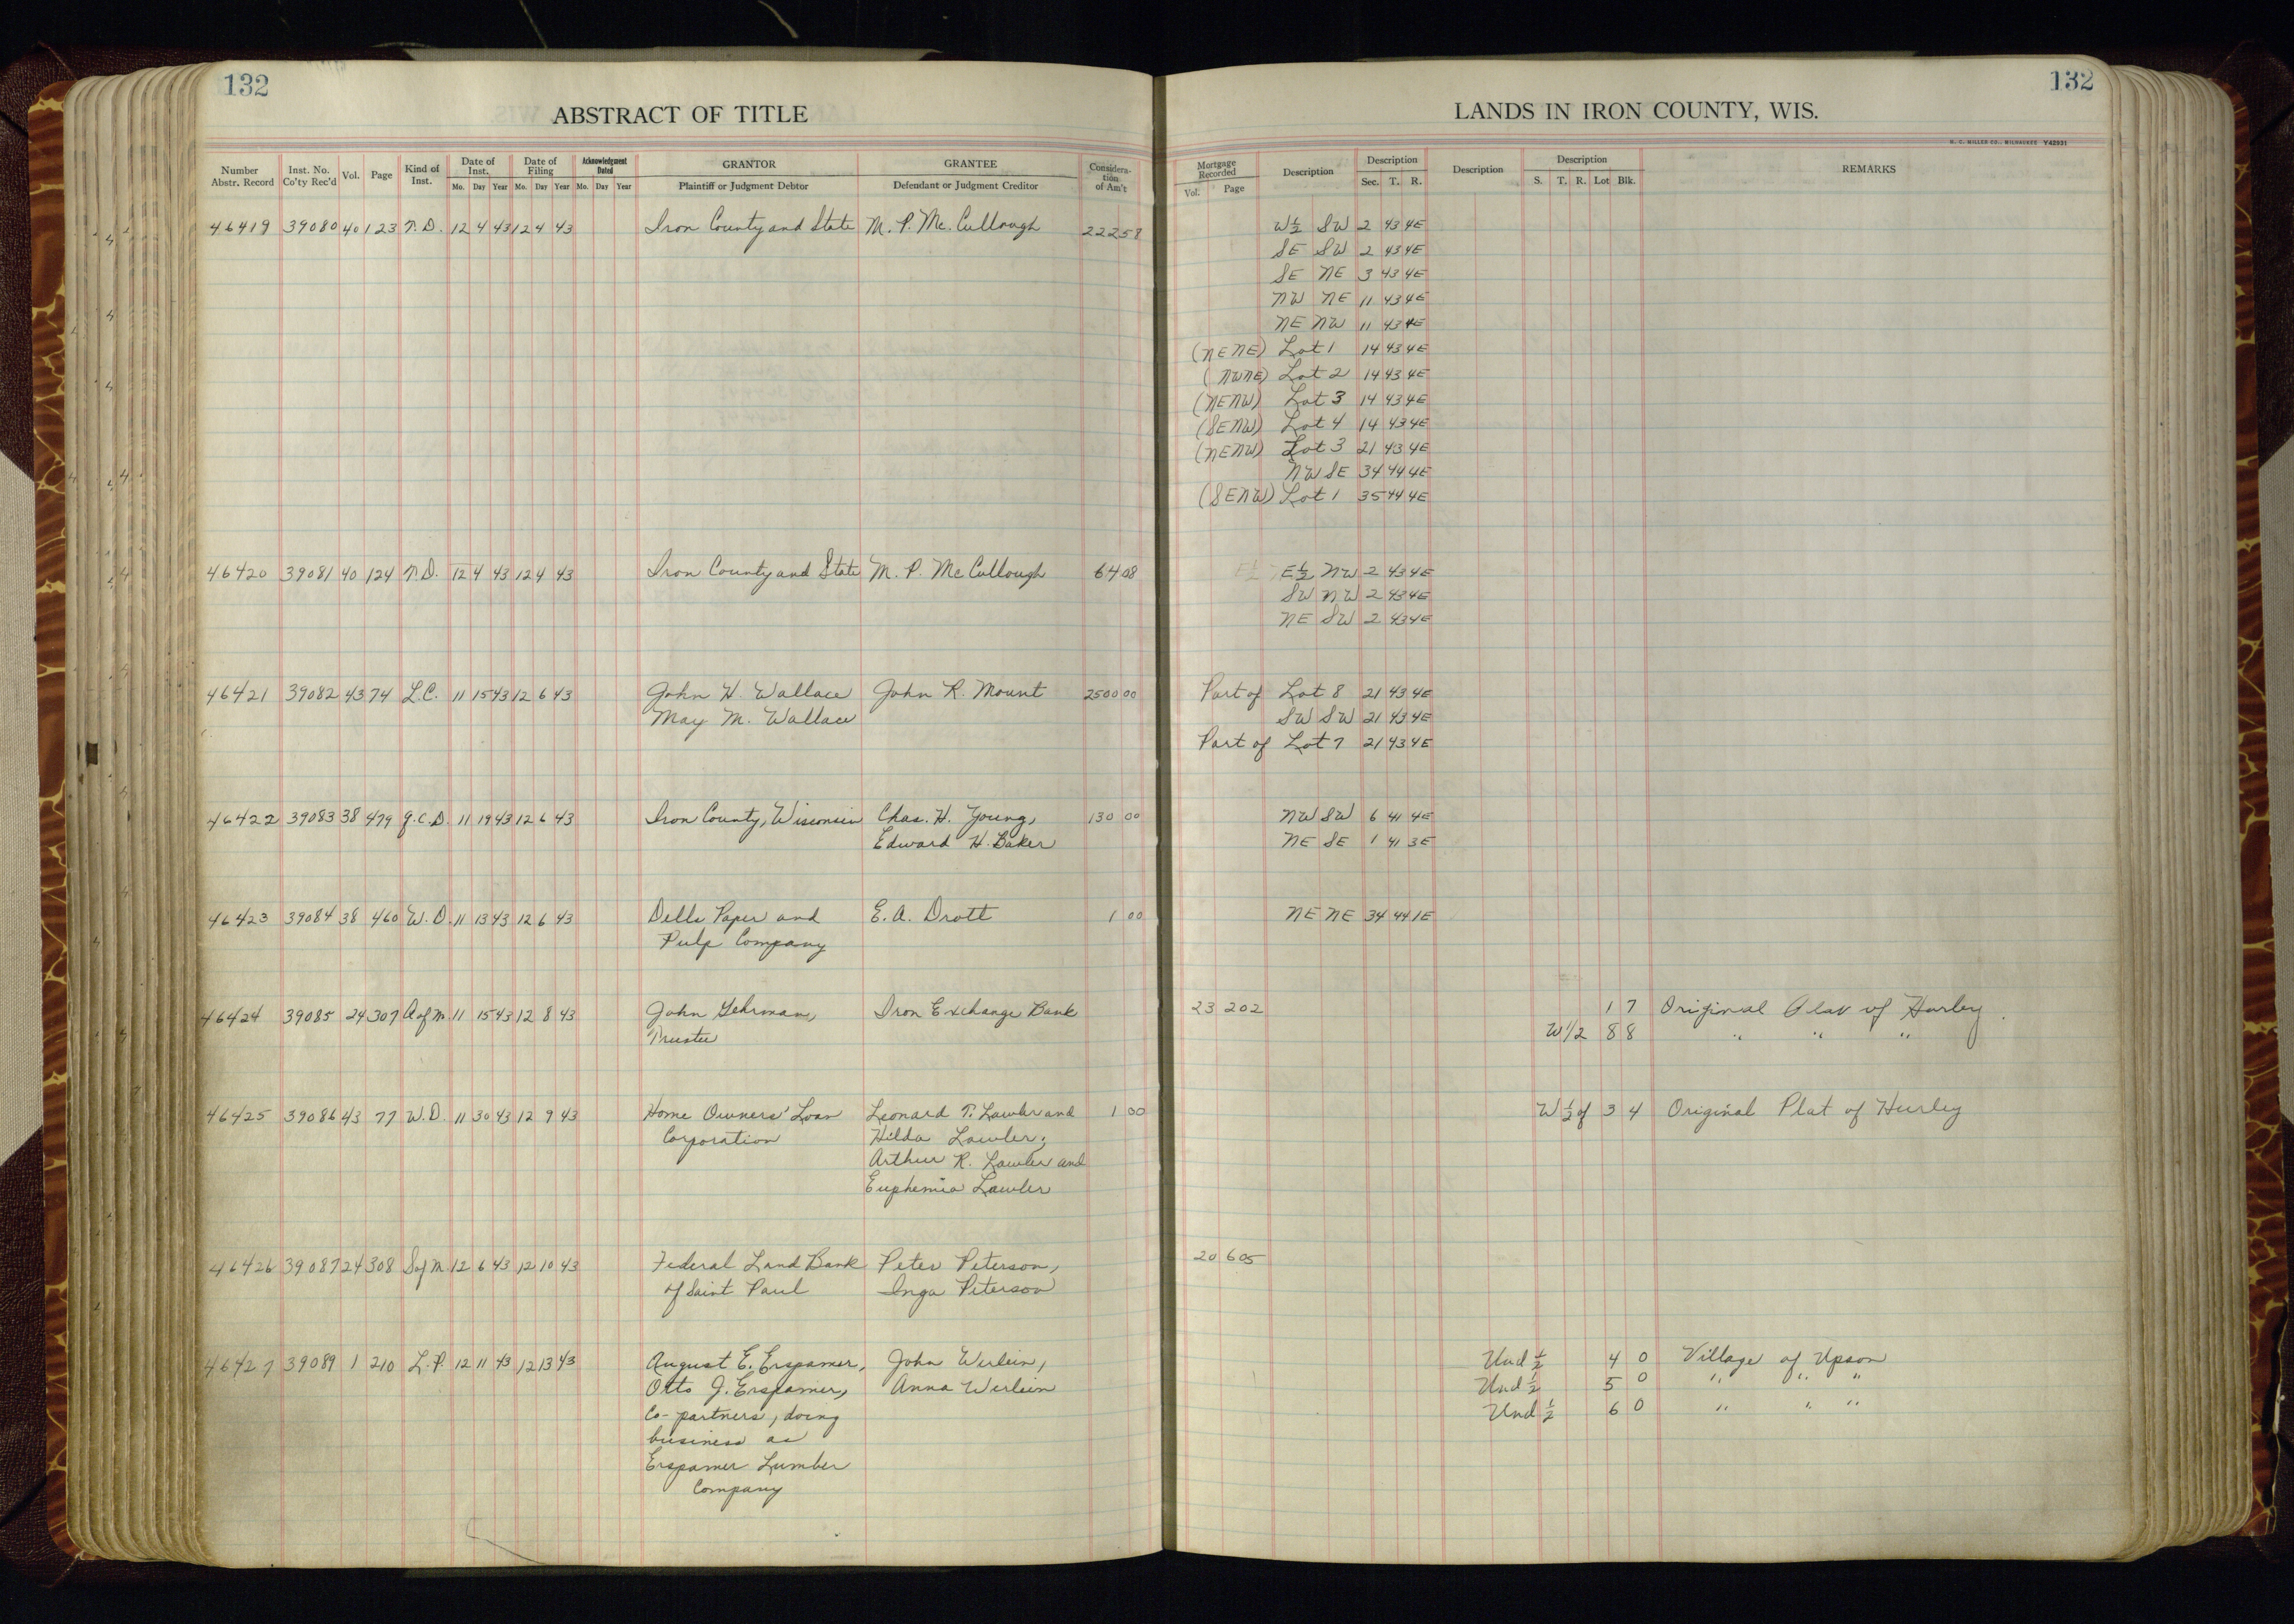 132
ABSTRACT OF TITLE
Number Abstr. Record Inst. No. Co'ty Rec'd Vol. Page Kind of Inst. Date of Inst. Mo. Day Year Date of Filing Mo. Day Year Acknowledgment Dated Mo. Day Year GRANTOR Plaintiff or Judgment Debtor GRANTEE Defendant or Judgment Creditor Considera-tion of Am't
46419 39080 40 123 T.D. 12 4 43 12 4 43 Iron County and State M. P. Mc. Cullough 222 58
46420 39081 40 124 T.D. 12 4 43 12 4 43 Iron County and State M. P. Mc Cullough 64 08
46421 39082 43 74 L.C. 11 15 43 12 6 43 John H. Wallace John R. Mount 2500 00
May M. Wallace
46422 39083 38 479 Q.C.D. 11 19 43 12 6 43 Iron County, Wisconsin Chas. H. Young, 130 00
Edward H. Baker
46423 39084 38 460 W.D. 11 13 43 12 6 43 Dells Paper and E. A. Drott 1 00
Pulp Company
46424 39085 24 307 A of M 11 15 43 12 8 43 John Gehrman, Iron Exchange Bank
Trustee
46425 39086 43 77 W.D. 11 30 43 12 9 43 Home Owners' Loan Leonard T. Lawler and 1 00
Corporation Hilda Lawler;
Arthur R. Lawler and
Euphemia Lawler
46426 39087 24 308 S of M 12 6 43 12 10 43 Federal Land Bank Peter Peterson,
of Saint Paul Inga Peterson
46427 39089 1 210 L.P. 12 11 43 12 13 43 August E. Erspamer, John Werlein,
Otto J. Erspamer, Anna Werlein
Co-partners, doing
business as
Erspamer Lumber
Company
132
LANDS IN IRON COUNTY, WIS.
H. C. MILLER CO., MILWAUKEE Y42931
Mortgage Recorded Vol. Page Description Description Sec. T. R. Description Description S. T. R. Lot Blk. REMARKS
W½ SW 2 43 4E
SE SW 2 43 4E
SE NE 3 43 4E
NW NE 11 43 4E
NE NW 11 43 4E
(NENE) Lot 1 14 43 4E
(NWNE) Lot 2 14 43 4E
(NENW) Lot 3 14 43 4E
(SENW) Lot 4 14 43 4E
(NENW) Lot 3 21 43 4E
NW SE 34 44 4E
(SENW) Lot 1 35 44 4E
E½ NW 2 43 4E
SW NW 2 43 4E
NE SW 2 43 4E
Part of Lot 8 21 43 4E
SW SW 21 43 4E
Part of Lot 7 21 43 4E
NW SW 6 41 4E
NE SE 1 41 3E
NE NE 34 44 1E
23 202 1 7 Original Plat of Hurley.
W1/2 8 8 " " "
W½ of 3 4 Original Plat of Hurley
20 605
Und ½ 4 0 Village of Upson
Und ½ 5 0 " " "
Und ½ 6 0 " " "